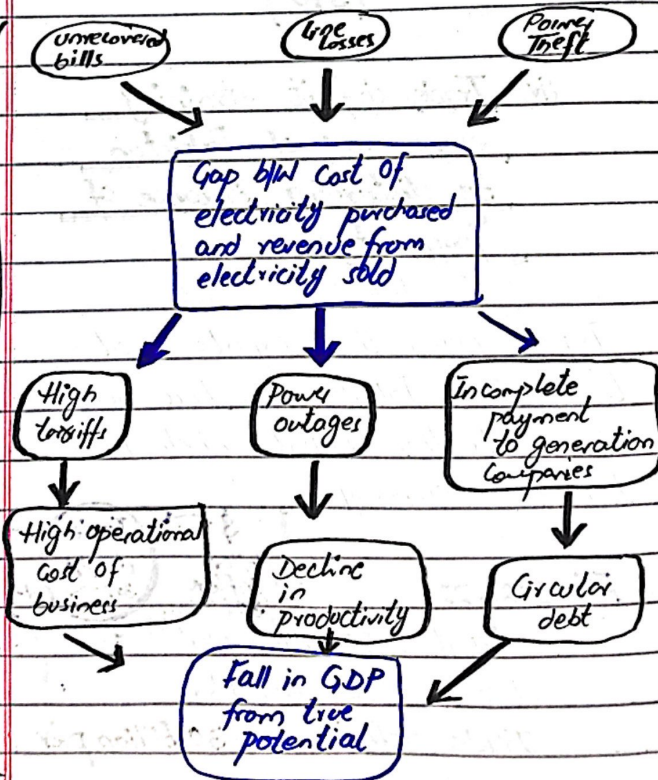 unrecovered
bills
Line
losses
Power
Theft
Gap b/w Cost of
electricity purchased
and revenue from
electricity sold
High
tarriffs
Power
outages
Incomplete
payment
to generation
Companies
High operational
Cost of
business
Decline
in
productivity
Circular
debt
Fall in GDP
from true
potential